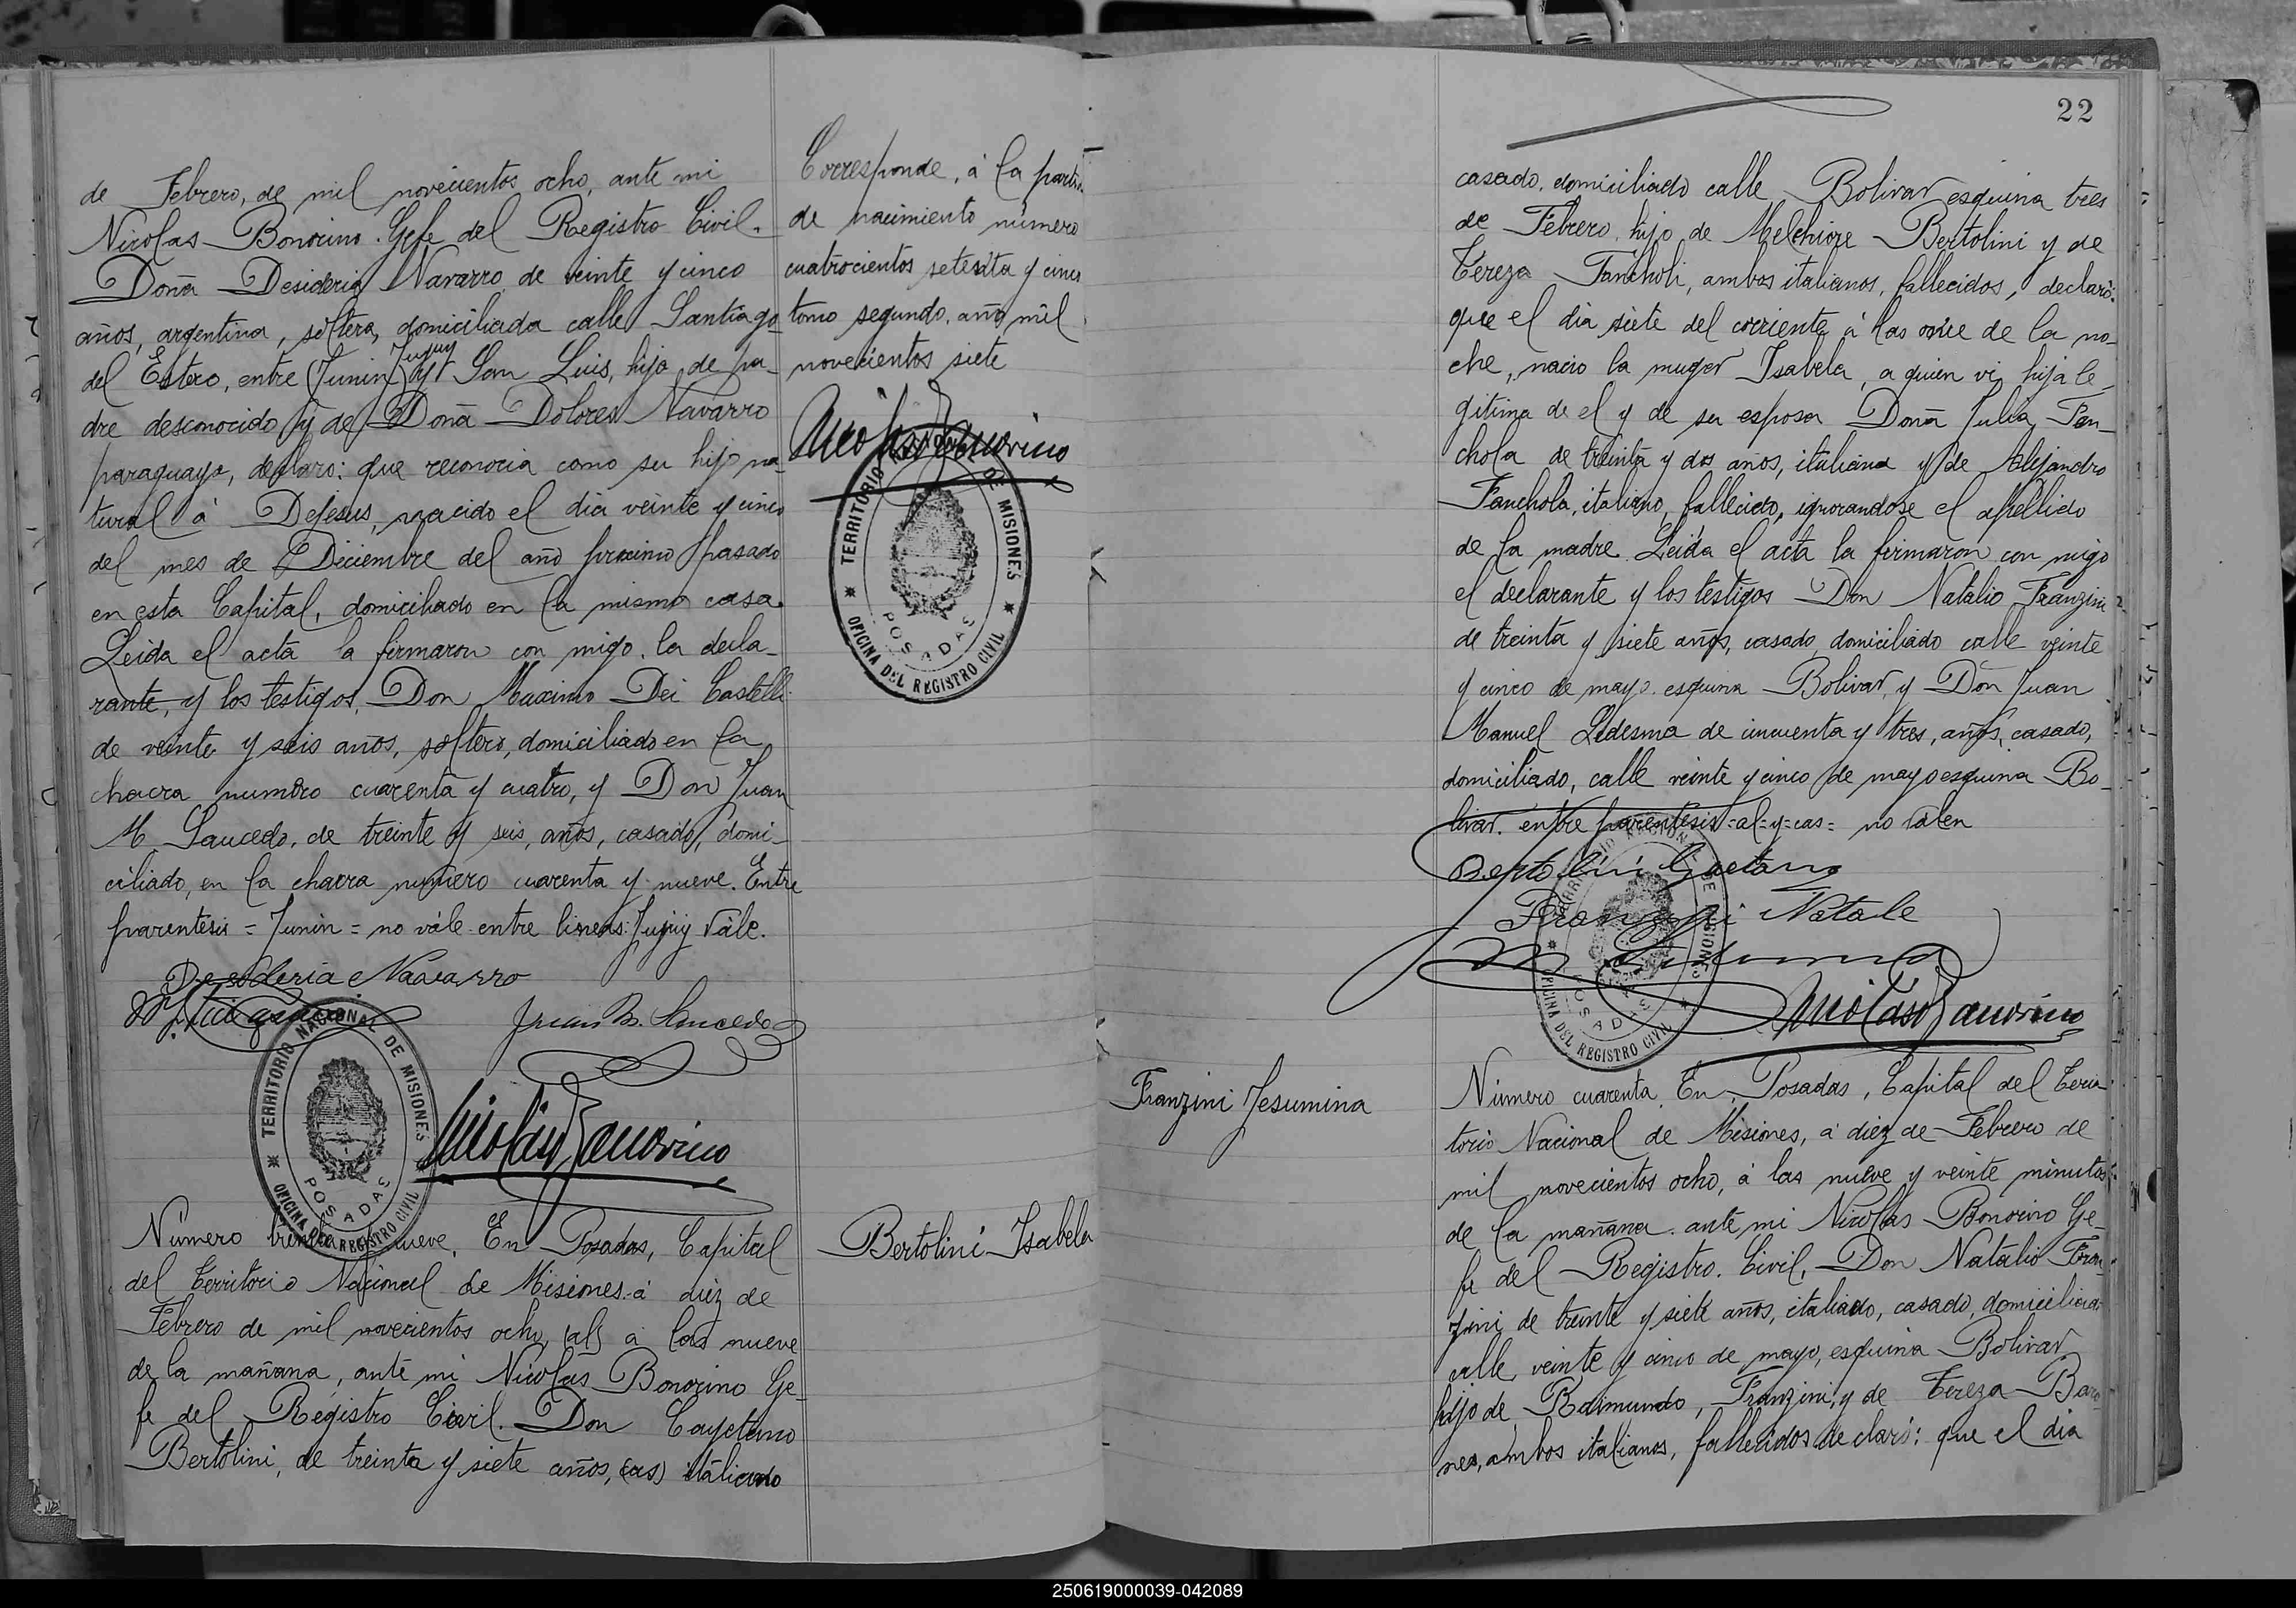 de Febrero, de mil novecientos ocho, ante mi
Nicolas Bonorino. Gefe del Registro Civil.
Doña Desideria Navarro de veinte y cinco
años, argentina, soltera, domiciliada calle Santiago
Jujuy
del Estero, entre (Junin) y San Luis, hija de pa-
dre desconocido y de Doña Dolores Navarro
paraguaya, declaro: que reconocia como su hijo na-
tural á Dejesus, nacido el dia veinte y cinco
del mes de Diciembre del año proximo pasado
en esta Capital, domiciliado en la misma casa.
Leida el acta la firmaron con migo, la decla-
rante, y los testigos, Don Maximo Dei Castelli
de veinte y seis años, soltero, domiciliado en la
chacra numero cuarenta y cuatro, y Don Juan
M. Saucedo, de treinte y seis, años, casado, domi-
ciliado, en la chacra numero cuarenta y nueve. Entre
parentesis = Junin = no vále entre lineas: Jujuy Vále.
Desideria Navarro
Juan M. Saucedo
TERRITORIO NACIONAL DE MISIONES
POSADAS
OFICINA DEL REGISTRO CIVIL
Nicolas Bonorino
Número treinta y nueve. En Posadas, Capital
del Territorio Nacional de Misiones á diez de
Febrero de mil novecientos ocho, (al) á las nueve
de la mañana, ante mi Nicolás Bonorino Ge-
fe del Registro Civil. Don Cayetano
Bertolini, de treinta y siete años, (cas) italiano
Corresponde, á la partida
de nacimiento número
cuatrocientos setenta y cinco
tomo segundo, año mil
novecientos siete
Nicolas Bonorino
TERRITORIO NACIONAL DE MISIONES
POSADAS
OFICINA DEL REGISTRO CIVIL
Bertolini Isabela
22
casado, domiciliado calle Bolivar esquina tres
de Febrero, hijo de Melchiore Bertolini y de
Tereza Fancholi, ambos italianos, fallecidos, declaró:
que el dia siete del corriente á las once de la no-
che, nacio la muger Isabela, a quien vi, hija le-
gitima de el y de su esposa Doña Julia Fan-
chola de treinta y dos años, italiana y de Alejandro
Fanchola, italiano, fallecido, ignorandose el apellido
de la madre. Leida el acta la firmaron con migo
el declarante y los testigos Don Natalio Franzini
de treinta y siete años, casado, domiciliado calle veinte
y cinco de mayo esquina Bolivar, y Don Juan
Manuel Ledesma de cincuenta y tres, años, casado,
domiciliado, calle veinte y cinco de mayo esquina Bo-
livar. entre parentesis =al=y=cas= no valen
Bertolini Gaetano
Franzini Natale
M Ledesma
Nicolas Bonorino
TERRITORIO NACIONAL DE MISIONES
POSADAS
OFICINA DEL REGISTRO CIVIL
Franzini Jesumina
Número cuarenta. En Posadas, Capital del Terri-
torio Nacional de Misiones, á diez de Febrero de
mil novecientos ocho, á las nueve y veinte minutos
de la mañana. ante mi Nicolás Bonorino Ge-
fe del Registro. Civil, Don Natalio Fran-
zini de treinte y siete años, italiado, casado, domiciliado
calle, veinte y cinco de mayo, esquina Bolivar
hijo de Raimundo, Franzini, y de Tereza Baro-
nes, ambos italianos, fallecidos declaró: que el dia
250619000039-042089